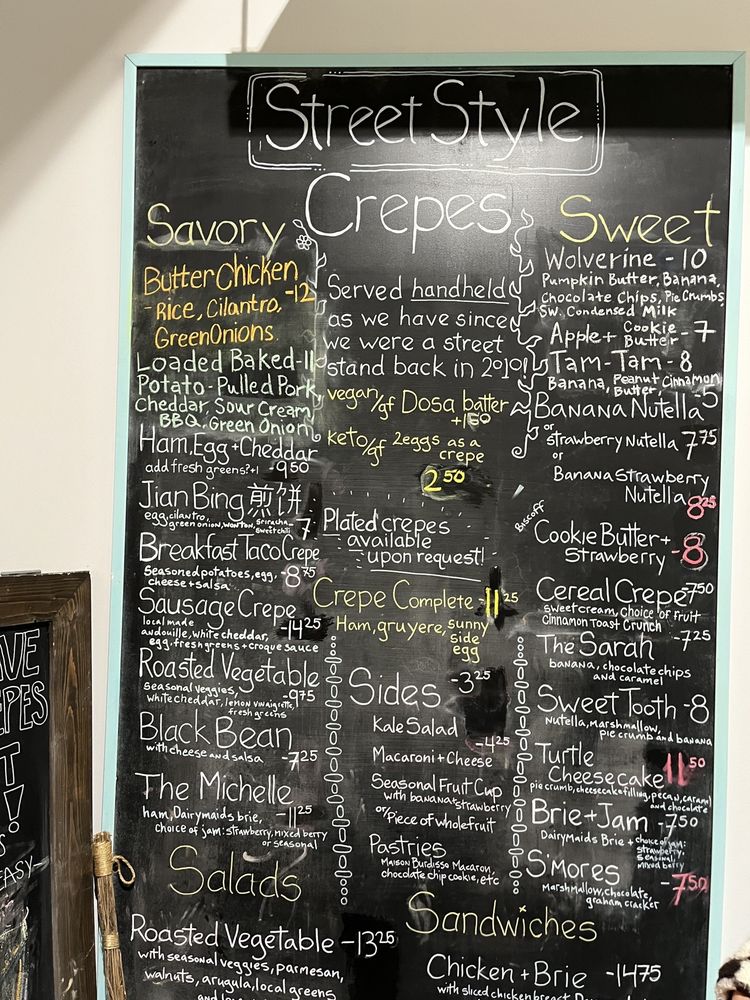 Street Style
Crepes
Savory
Butter Chicken
-12
- Rice, Cilantro,
Green Onions.
Loaded Baked -11
Potato - Pulled Pork,
Cheddar, Sour Cream
BBQ, Green Onion
Ham, Egg + Cheddar
add fresh greens? +1 -950
Jian Bing 煎饼
egg, cilantro,
green onion, wonton, sriracha-
sweet chili 7
Breakfast Taco Crepe
seasoned potatoes, egg,
cheese + salsa -8 75
Sausage Crepe
local made -14 25
andouille, white cheddar,
egg, fresh greens + croque sauce
Roasted Vegetable
Seasonal veggies, -975
white cheddar, lemon vinaigrette,
fresh greens
Black Bean
with cheese and salsa -7 25
The Michelle
ham, Dairymaids brie, -11 25
choice of jam: strawberry, mixed berry
or seasonal
Salads
Roasted Vegetable -13 25
with seasonal veggies, parmesan,
walnuts, arugula, local greens
Served handheld
as we have since
we were a street
stand back in 2010!
vegan/gf Dosa batter
+1 50
keto/gf 2 eggs as a
crepe
2 50
Plated crepes
available
upon request!
Crepe Complete -11 25
Ham, gruyere, sunny
side
egg
Sides -3 25
Kale Salad
-4 25
Macaroni + Cheese
Seasonal Fruit Cup
with banana + strawberry
or/ Piece of whole fruit
Pastries
Maison Burdisso Macaron,
chocolate chip cookie, etc
Sandwiches
Chicken + Brie -1475
with sliced chicken breast
Sweet
Wolverine - 10
Pumpkin Butter, Banana,
Chocolate Chips, Pie Crumbs
Sw. Condensed Milk
Apple + Cookie -7
Butter
Tam-Tam - 8
Banana, Peanut Butter, Cinnamon
Banana Nutella -5
or
strawberry Nutella 7 75
or
Banana Strawberry
Nutella
8 25
Biscoff
Cookie Butter +
Strawberry -8
Cereal Crepe 7 50
sweet cream, choice of fruit
Cinnamon Toast Crunch
The Sarah -7 25
banana, chocolate chips
and caramel
Sweet Tooth -8
Nutella, marshmallow,
pie crumb and banana
Turtle
Cheesecake 11 50
pie crumb, cheesecake filling, pecan, caramel
and chocolate
Brie + Jam -7 50
Dairymaids Brie + choice of jam:
strawberry,
seasonal,
mixed berry
S'mores
-7 50
Marshmallow, chocolate,
graham cracker
AVE
EPES
T
!
S
EASY